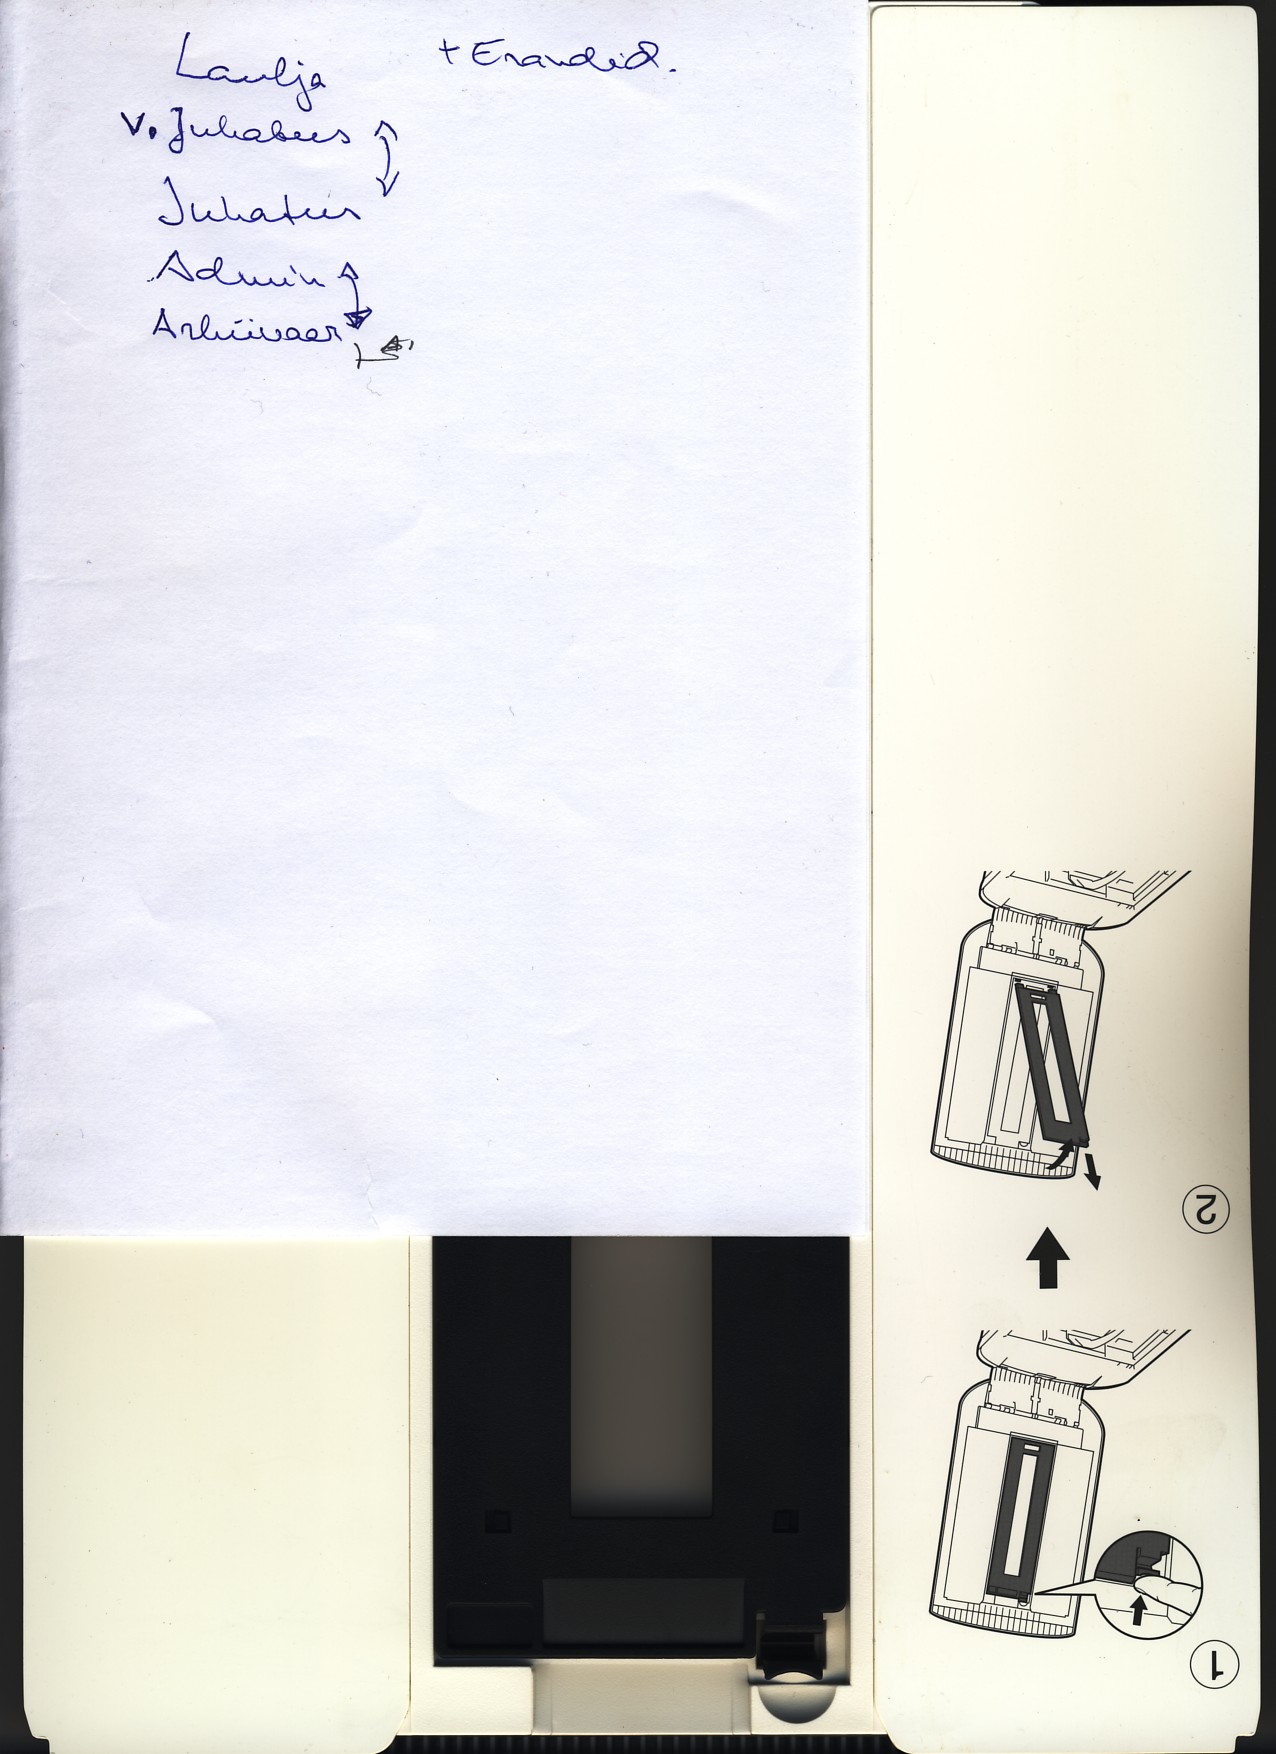 Laulja
+ Erandid.
V. Juhatus
Juhatus
Admin
Arhiivaar
2
1